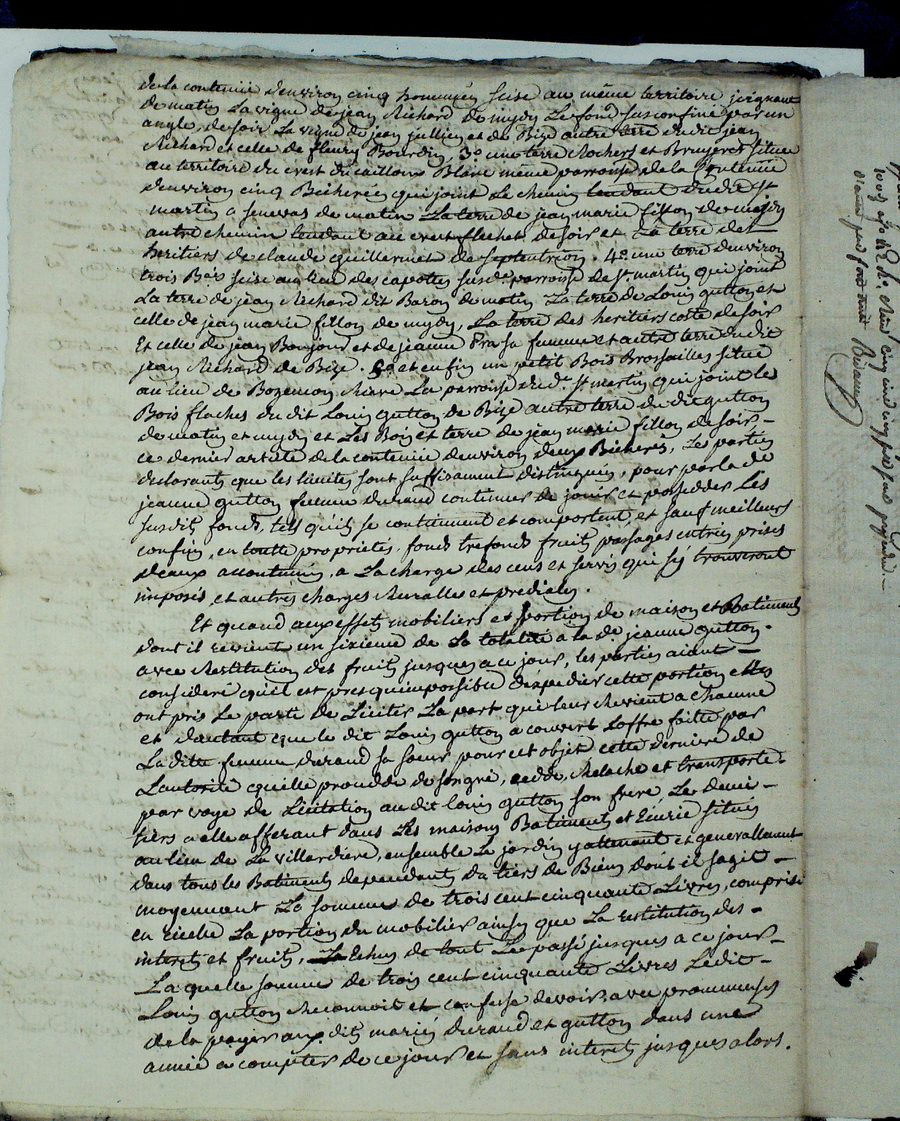 de la contenue d'environ cinq hommées scise au même territoire joignant
de matin La vigne de jean Richard de mydy Le fond susconfiné par un
angle, de soir La vigne de jean jullien et de Bize autre terre du dit jean
Richard et celle de fleury Bourdin, 3° une terre Rochers et Bruyeres située
au territoire du crest du caillou Blanc même parroisse de la Contenue
d'environ cinq Bicherées qui joint Le chemin tendant du dit St
martin a senevas de matin La terre de jean marie fillon de mydy
autre chemin tendant au crest flechet de soir et La terre des
heritiers de claude guillermet de septentrion. 4° une terre d'environ
trois Bes scise au lieu des capottes susde parroisse de St martin qui joint
La terre de jean Richard dit Baron de matin La terre de Louis gutton et
celle de jean marie fillon de mydy, La terre des heritiers coste de soir
Et celle de jean Bonjour et de jeanne sa femme et autre terre du dit
jean Richard de Bize. 5° et enfin un petit Bois Brossailles situé
au lieu de la parroisse du d. St martin qui joint le
Bois flaches du dit Louis gutton de Bize autre terre du dit gutton
de matin et mydy et Les Bois et terre de jean marie fillon de soir -
ce dernier article de la contenue d'environ deux Bicherés, Les parties
declarants que les limites sont suffisament distinguées, pour par la de
jeanne gutton femme durand continuer de jouir et posseder Les
susdits fonds, tels qu'ils se contiennent et comportent, et sauf meilleurs
confins, en toutte proprietés, fonds trefonds fruits passages entrées prises
d'eaux accoutumées, a La charge des cens et servis qui s'y trouveront
imposés et autres charges Ruralles et prediales.
Et quand aux effets mobiliers et portion de maison et Batiments
dont il revient un sixieme de La totalité a la de jeanne gutton.
avec Restitution des fruits jusques a ce jour, les parties aiant -
consideré qu'il est presqu'impossible d'expedier cette portion elles
ont pris Le parti de Liciter La part qui leur Revient a chacune
et d'autant que le dit Louis gutton a couvert L'offre faite par
La ditte femme durand sa soeur pour cet objet cette derniere de
L'autorité qu'elle procedde de son gré, cedde, Relache et transporte.
par voye de Licitation au dit louis gutton son frere, Le demi -
tiers a elle afferant dans Les maisons Batiments et Ecurie situés
au lieu de La villardiere, ensemble Le jardin y attenant et generallement
dans tous les Batiments dependants du tiers de Biens dont il s'agit -
moyennant La somme de trois cent cinquante Livres, comprise
en icelle La portion du mobilier ainsy que La Restitution des -
interets et fruits, Echus de tout Le passé jusques a ce jour -
La quelle somme de trois cent cinquante Livres Le dit -
Louis gutton Reconnoit et confesse devoir avec prommesses
de la payer aux dits mariés durand et gutton dans une
année a compter de ce jour et sans interet jusques alors.